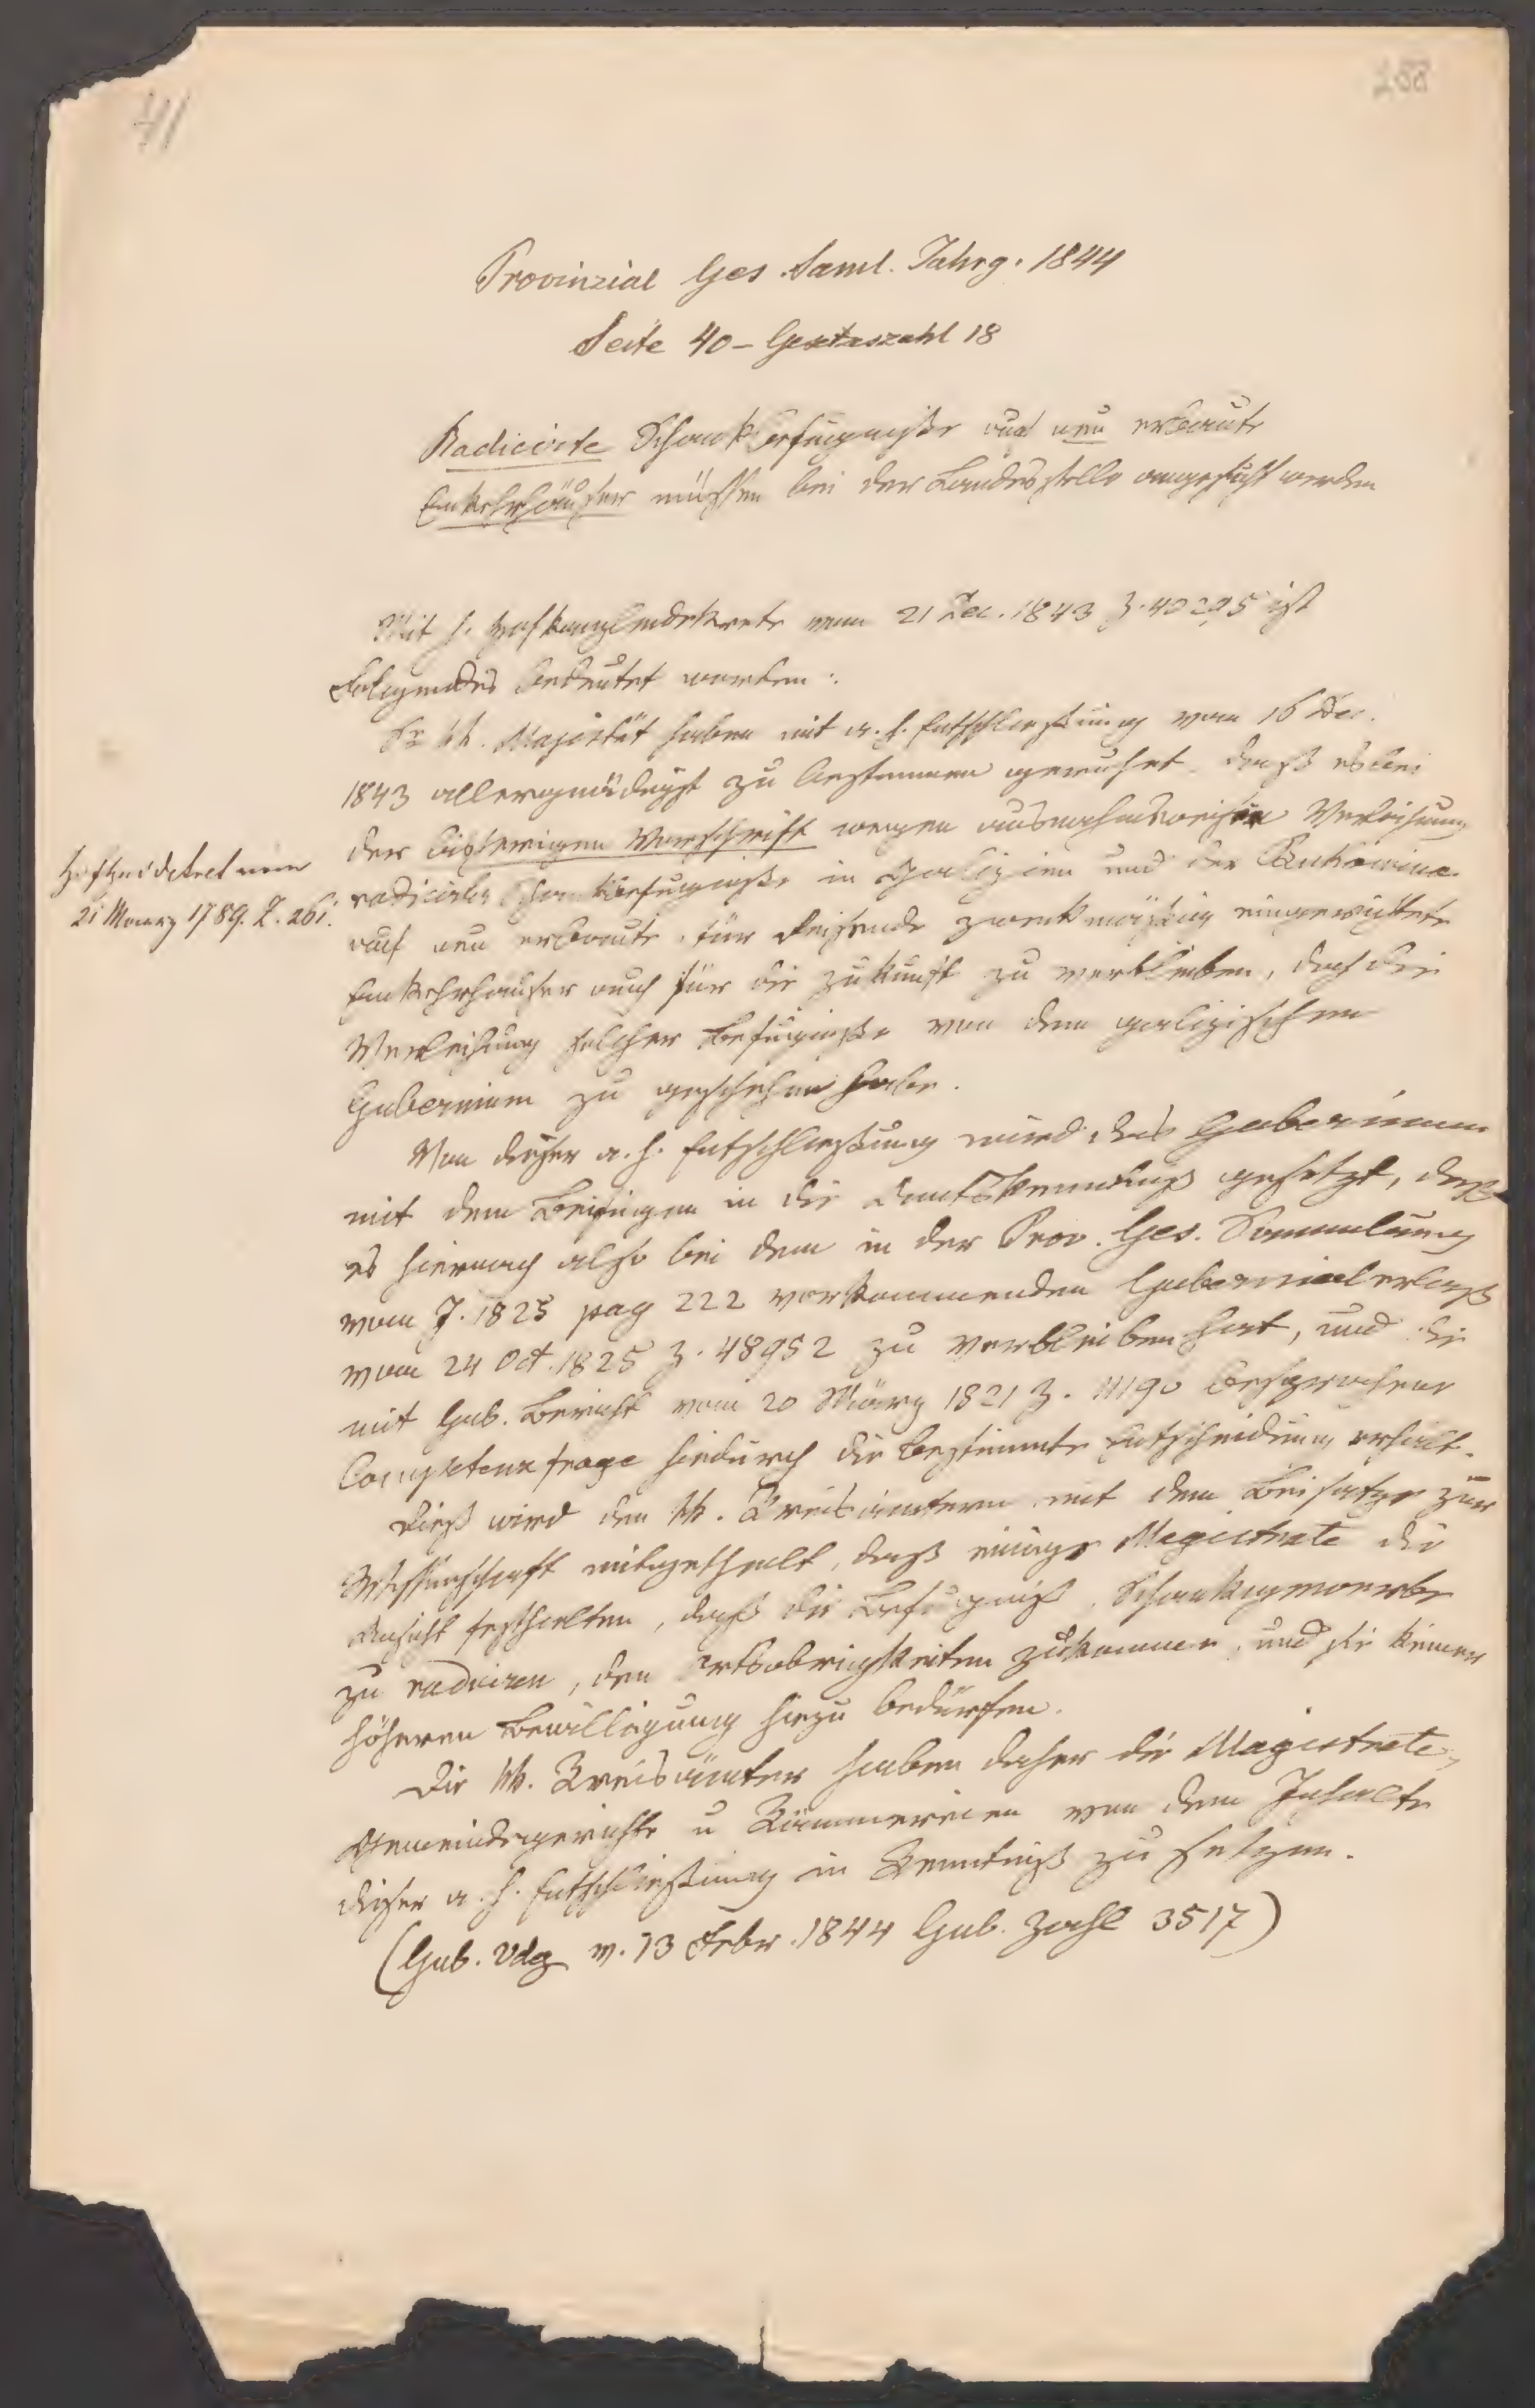 41
288
Provinzial Ges. Saml. Jahrg. 1844
Seite 40 – Gesetzeszahl 18
Radicirte Schankbefugnisse auf neu erbaute
Einkehrhäuser müssen bei der Landesstelle angesucht werden
Mit h. Hofkanzleidekrete vom 21 Dec. 1843 Z. 40295 ist
Folgendes bedeutet worden:
Se kk. Majestät haben mit a. h. Entschließung vom 16 Dec.
1843 allergnädigst zu bestimmen geruhet, daß es bei
der bisherigen Vorschrift wegen ausnahmsweiser Verleihung
radicirter Schankbefugnisse in Galizien und der Bukowina
auf neu erbaute, für Reisende zweckmäßig eingerichtete
Einkehrhäuser auch für die Zukunft zu verbleiben, doch die
Verleihung solcher Befugnisse von dem galizischen
Gubernium zu geschehen habe.
Hofkzeidekret vom
21 Maerz 1789. Z. 261.
Von dieser a. h. Entschließung wird das Gubernium
mit dem Beifügen in die Amtskenntniß gesetzt, daß
es hiernach also bei dem in der Prov. Ges. Sammlung
vom J. 1825 pag 222 vorkommenden Gubernialerlaß
vom 24 Oct. 1825 Z. 48952 zu verbleiben hat, und die
mit Gub. Bericht vom 20 März 1821 Z. 11190 besprochene
Competenzfrage hiedurch die bestimmte Entscheidung erhält.
Dieß wird den kk. Kreisämtern mit dem Beisatze zur
Wissenschaft mitgetheilt, daß einige Magistrate die
Ansicht festhalten, daß die Befugniß, Schankgewerbe
zu radiciren, den Ortsobrigkeiten zukomme, und sie keiner
höheren Bewilligung hiezu bedürfen.
Die kk. Kreisämter haben daher die Magistrate,
Gemeindegerichte u Kämmereien von dem Inhalte
dieser a. h. Entschließung in Kenntniß zu setzen.
(Gub. Vdg v. 13 Febr. 1844 Gub. Zahl 3517)